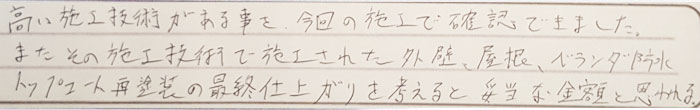 高い施工技術がある事を、今回の施工で確認できました。
またその施工技術で施工された外壁、屋根、ベランダ防水
トップコート再塗装の最終仕上がりを考えると妥当な金額と思われる